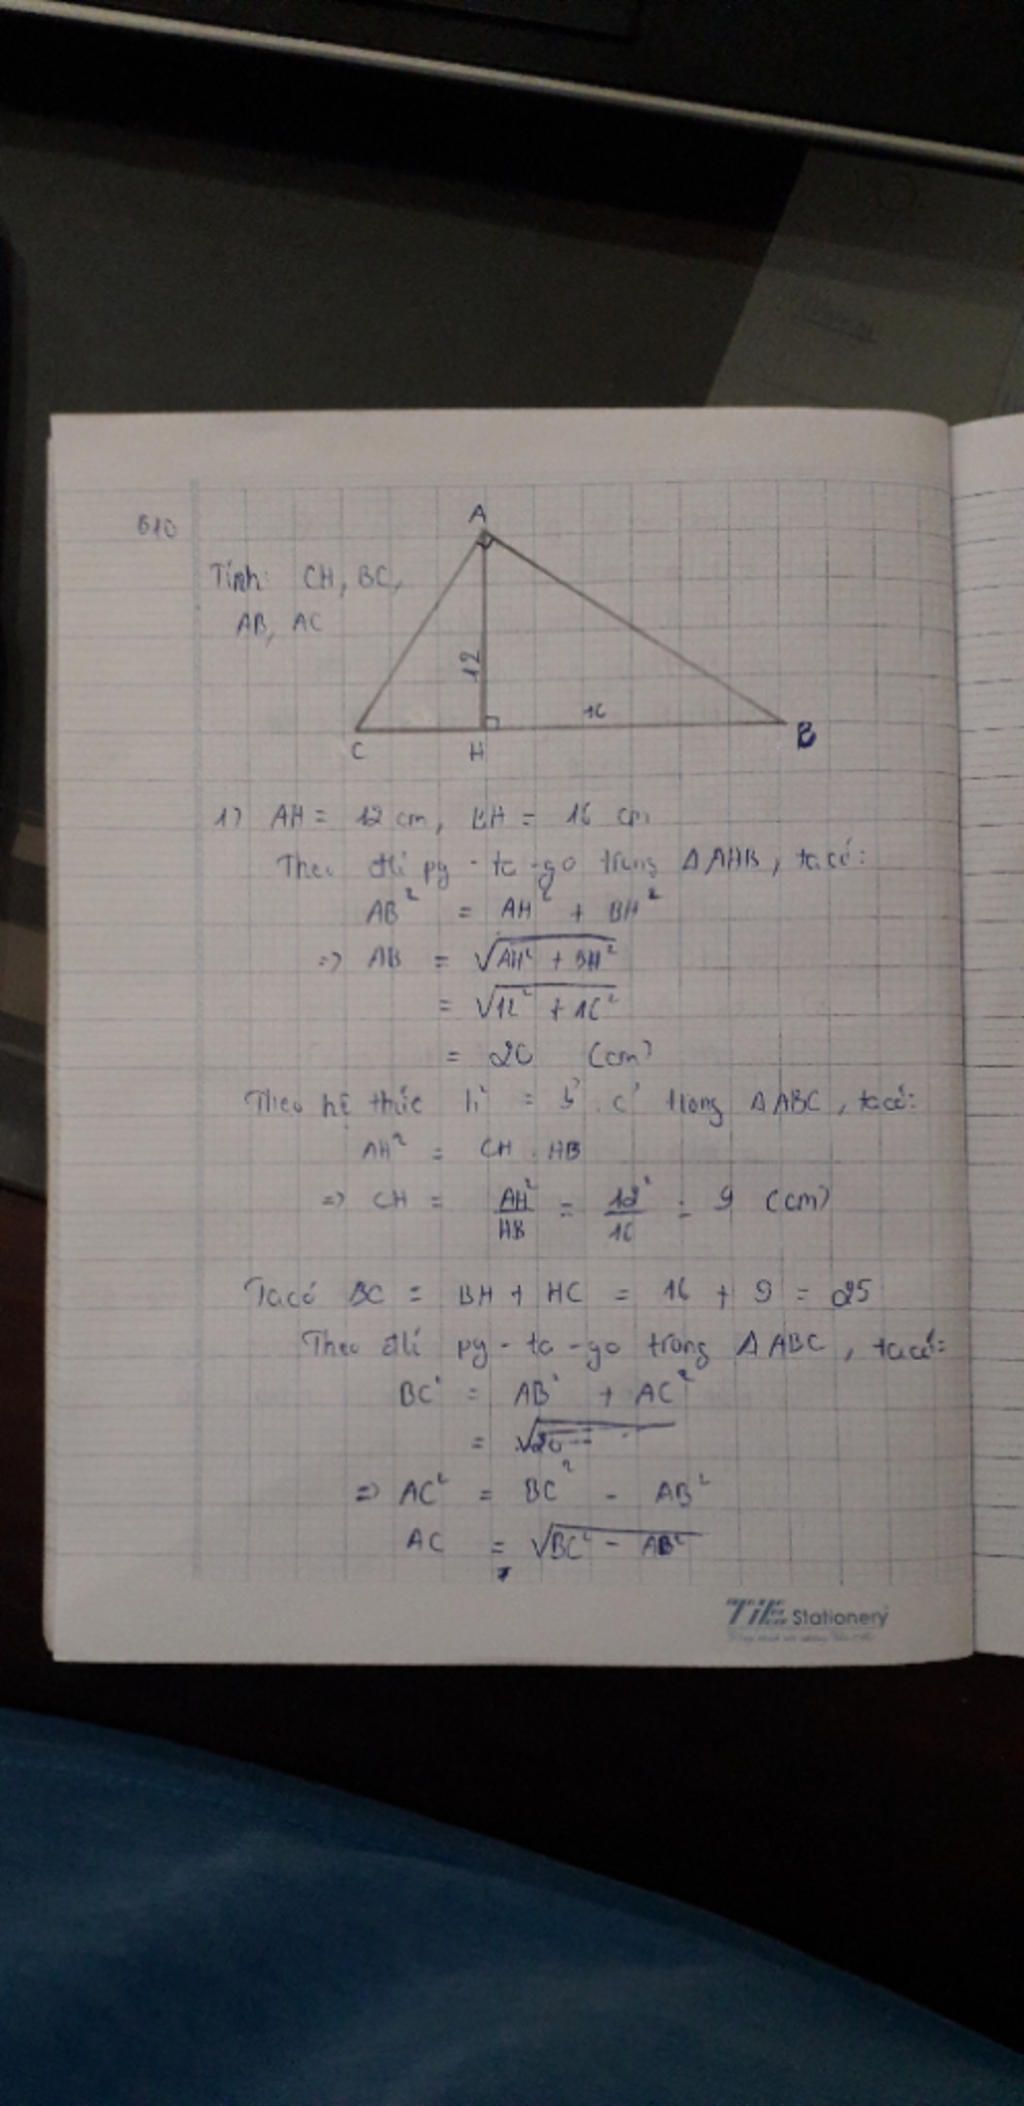 B10
A
Tính: CH, BC,
AB, AC
12
16
C H B
1) AH = 12 cm, BH = 16 cm
Theo đlí py-ta-go trong ΔAHB, ta có:
AB² = AH² + BH²
=> AB = √AH² + BH²
= √12² + 16²
= 20 (cm)
Theo hệ thức h² = b'.c' trong ΔABC, ta có:
AH² = CH . HB
=> CH = AH²/HB = 12²/16 = 9 (cm)
Ta có BC = BH + HC = 16 + 9 = 25
Theo đlí py-ta-go trong ΔABC, ta có:
BC² = AB² + AC²
= √20
=> AC² = BC² - AB²
AC = √BC² - AB²
TiE Stationery